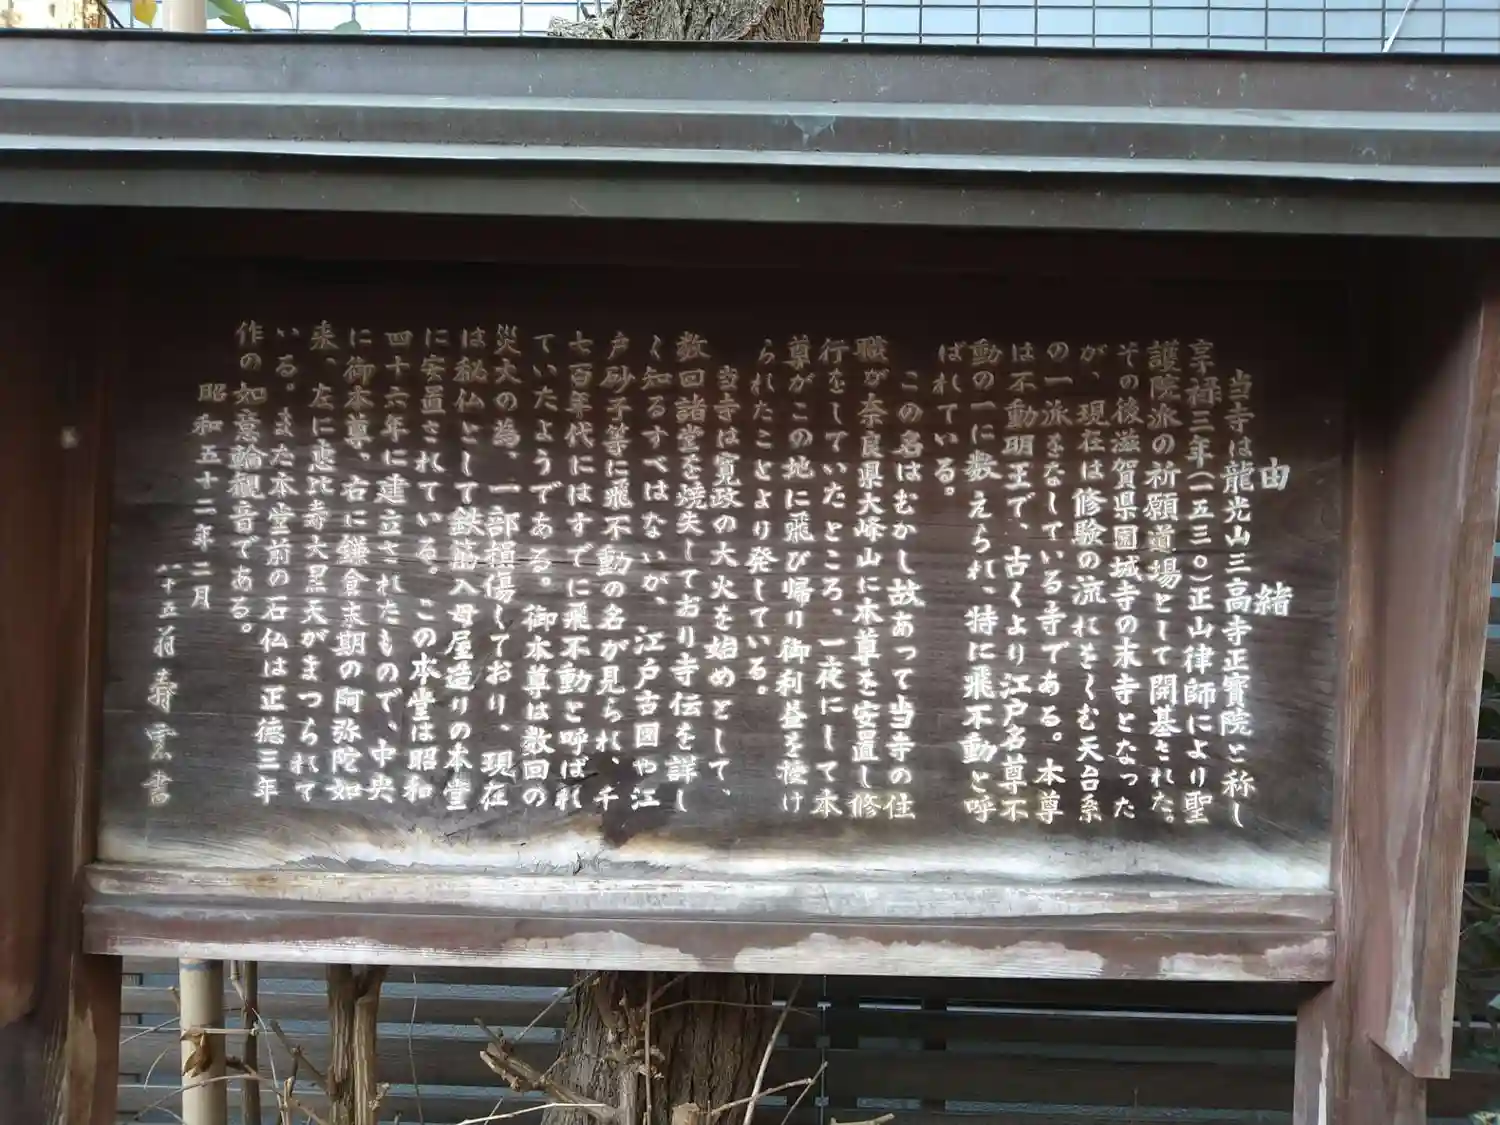 由緒
当寺は龍光山三高寺正寶院と称し
享禄三年(一五三〇)正山律師により聖
護院派の祈願道場として開基された。
その後滋賀県園城寺の末寺となった
が、現在は修験の流れをくむ天台系
の一派をなしている寺である。本尊
は不動明王で、古くより江戸名尊不
動の一に数えられ、特に飛不動と呼
ばれている。
この名はむかし故あって当寺の住
職が奈良県大峰山に本尊を安置し修
行をしていたところ、一夜にして本
尊がこの地に飛び帰り御利益を授け
られたことより発している。
当寺は寛政の大火を始めとして、
数回諸堂を焼失しており寺伝を詳し
く知るすべはないが、江戸古図や江
戸砂子等に飛不動の名が見られ、千
七百年代にはすでに飛不動と呼ばれ
ていたようである。御本尊は数回の
災火の為、一部損傷しており、現在
は秘仏として鉄筋入母屋造りの本堂
に安置されている。この本堂は昭和
四十六年に建立されたもので、中央
に御本尊、右に鎌倉末期の阿弥陀如
来、左に恵比寿大黒天がまつられて
いる。また本堂前の石仏は正徳三年
作の如意輪観音である。
昭和五十二年二月
八十五翁 壽雲書